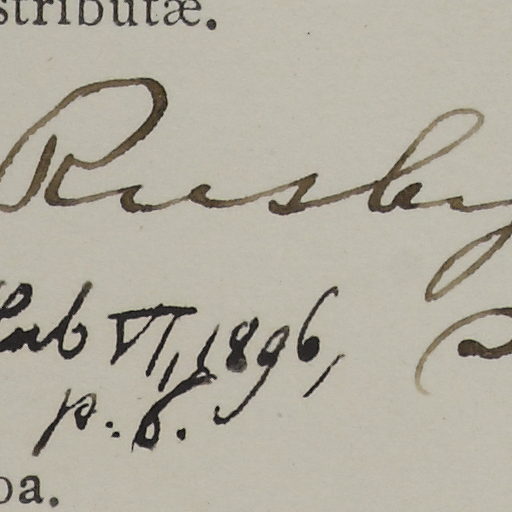 stributæ.
Rusby
Club VI, 1896,
p. 6.
oa.